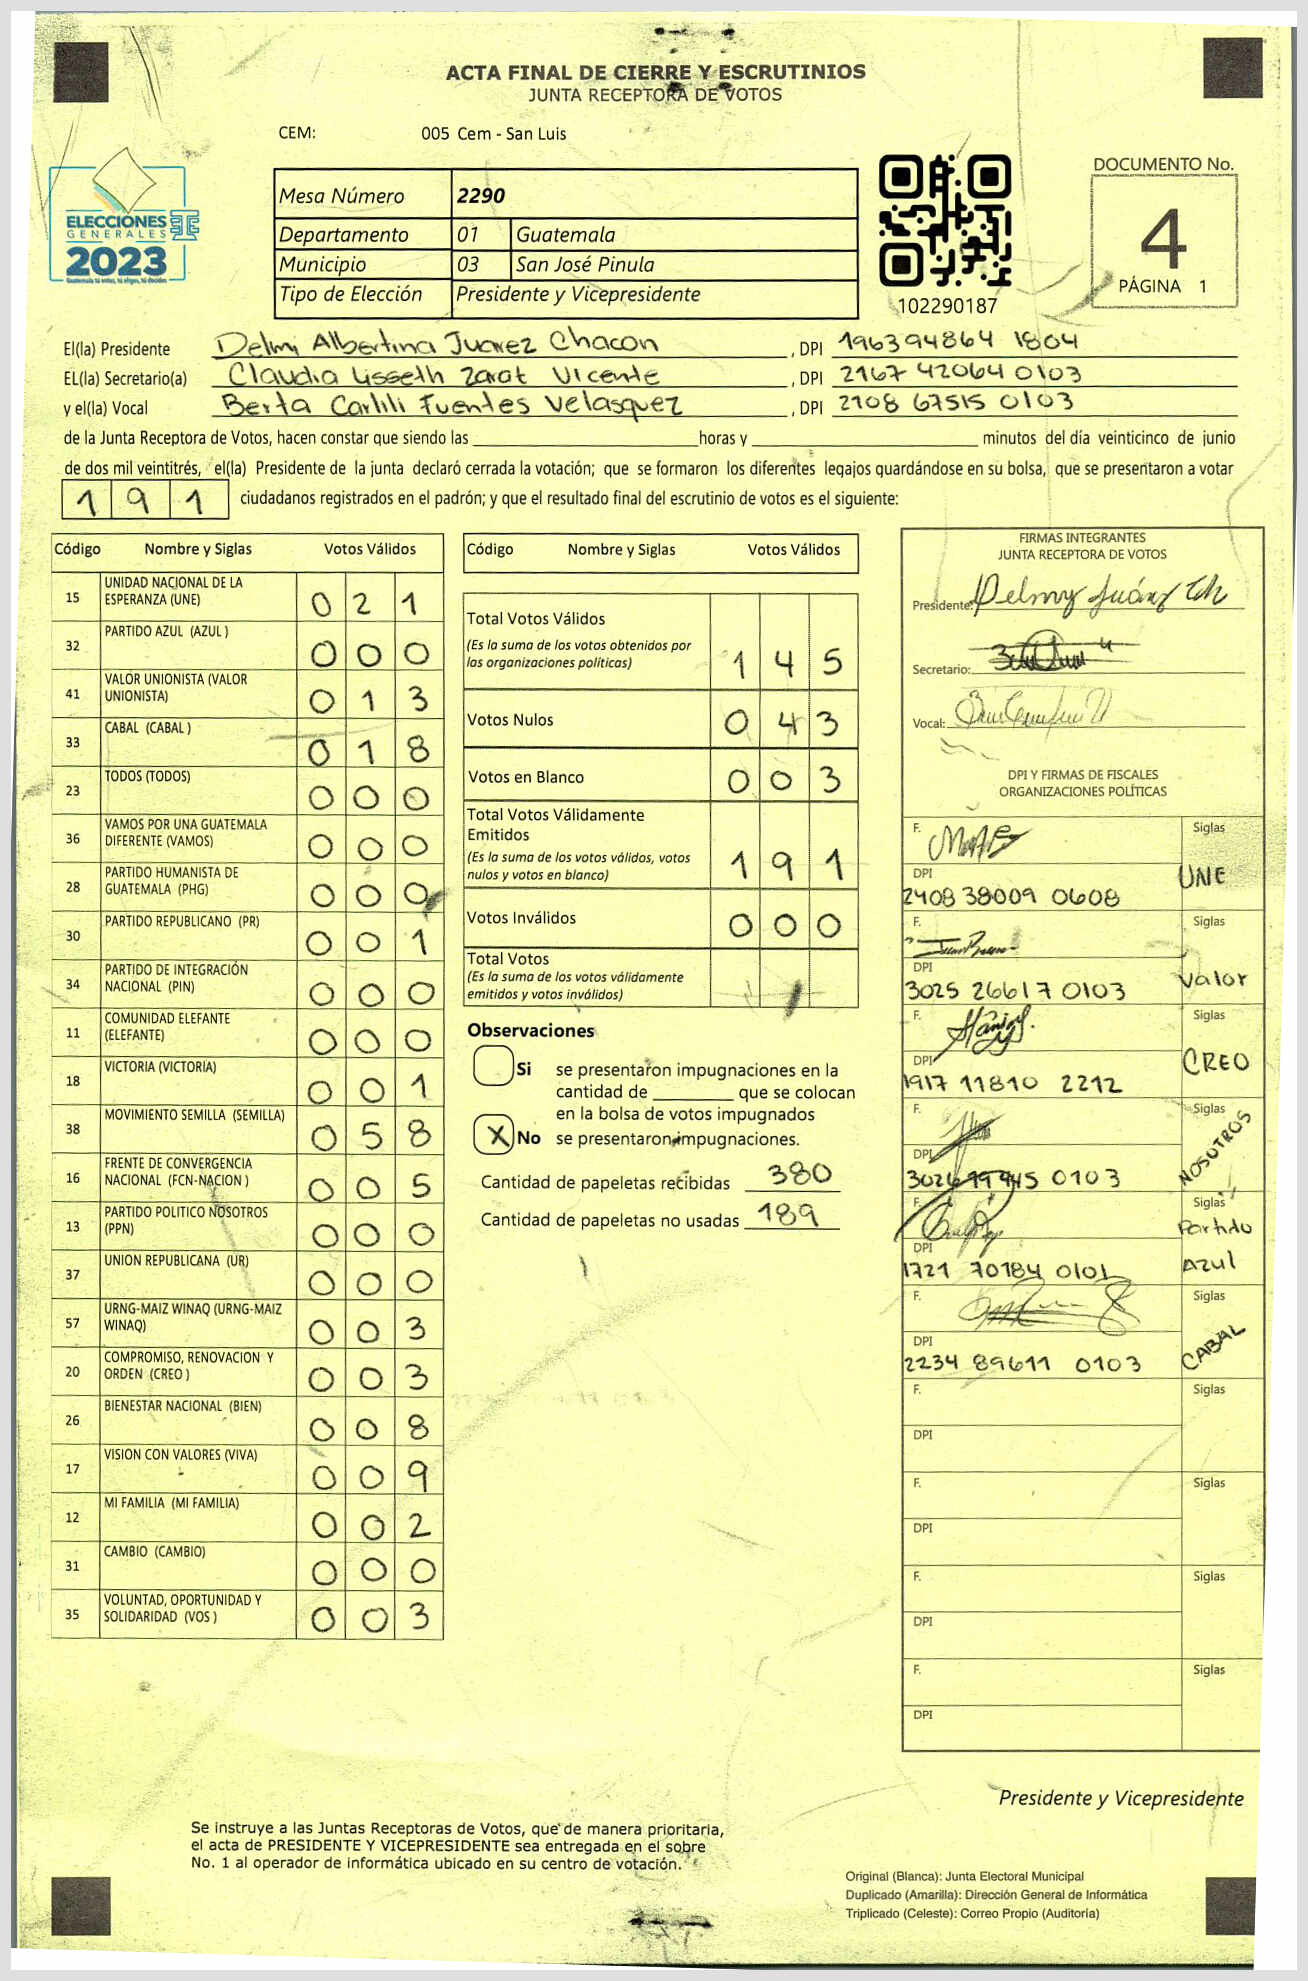 ACTA FINAL DE CIERRE Y ESCRUTINIOS
JUNTA RECEPTORA DE VOTOS
CEM: 005 Cem - San Luis
ELECCIONES
GENERALES
2023
Guatemala tú votas, tú eliges, tú decides
Mesa Número 2290
Departamento 01 Guatemala
Municipio 03 San José Pinula
Tipo de Elección Presidente y Vicepresidente
102290187
DOCUMENTO No.
4
PÁGINA 1
El(la) Presidente Delmi Albertina Juarez Chacon , DPI 196394864 1804
EL(la) Secretario(a) Claudia Lisseth Zarat Vicente , DPI 2167 42064 0103
y el(la) Vocal Berta Carlili Fuentes Velasquez , DPI 2108 67515 0103
de la Junta Receptora de Votos, hacen constar que siendo las horas y minutos del día veinticinco de junio
de dos mil veintitrés, el(la) Presidente de la junta declaró cerrada la votación; que se formaron los diferentes legajos guardándose en su bolsa, que se presentaron a votar
191 ciudadanos registrados en el padrón; y que el resultado final del escrutinio de votos es el siguiente:
Código Nombre y Siglas Votos Válidos
15 UNIDAD NACIONAL DE LA ESPERANZA (UNE) 0 2 1
32 PARTIDO AZUL (AZUL ) 0 0 0
41 VALOR UNIONISTA (VALOR UNIONISTA) 0 1 3
33 CABAL (CABAL ) 0 1 8
23 TODOS (TODOS) 0 0 0
36 VAMOS POR UNA GUATEMALA DIFERENTE (VAMOS) 0 0 0
28 PARTIDO HUMANISTA DE GUATEMALA (PHG) 0 0 0
30 PARTIDO REPUBLICANO (PR) 0 0 1
34 PARTIDO DE INTEGRACIÓN NACIONAL (PIN) 0 0 0
11 COMUNIDAD ELEFANTE (ELEFANTE) 0 0 0
18 VICTORIA (VICTORIA) 0 0 1
38 MOVIMIENTO SEMILLA (SEMILLA) 0 5 8
16 FRENTE DE CONVERGENCIA NACIONAL (FCN-NACION ) 0 0 5
13 PARTIDO POLITICO NOSOTROS (PPN) 0 0 0
37 UNION REPUBLICANA (UR) 0 0 0
57 URNG-MAIZ WINAQ (URNG-MAIZ WINAQ) 0 0 3
20 COMPROMISO, RENOVACION Y ORDEN (CREO ) 0 0 3
26 BIENESTAR NACIONAL (BIEN) 0 0 8
17 VISION CON VALORES (VIVA) 0 0 9
12 MI FAMILIA (MI FAMILIA) 0 0 2
31 CAMBIO (CAMBIO) 0 0 0
35 VOLUNTAD, OPORTUNIDAD Y SOLIDARIDAD (VOS ) 0 0 3
Código Nombre y Siglas Votos Válidos
Total Votos Válidos
(Es la suma de los votos obtenidos por
las organizaciones políticas) 1 4 5
Votos Nulos 0 4 3
Votos en Blanco 0 0 3
Total Votos Válidamente
Emitidos
(Es la suma de los votos válidos, votos
nulos y votos en blanco) 1 9 1
Votos Inválidos 0 0 0
Total Votos
(Es la suma de los votos válidamente
emitidos y votos inválidos)
Observaciones
Si se presentaron impugnaciones en la
cantidad de que se colocan
en la bolsa de votos impugnados
X No se presentaron impugnaciones.
Cantidad de papeletas recibidas 380
Cantidad de papeletas no usadas 189
FIRMAS INTEGRANTES
JUNTA RECEPTORA DE VOTOS
Presidente: Delmy Juárez Ch
Secretario:
Vocal:
DPI Y FIRMAS DE FISCALES
ORGANIZACIONES POLÍTICAS
F. Siglas
DPI UNE
2408 38009 0608
F. Siglas
DPI Valor
3025 26617 0103
F. Siglas
DPI CREO
1917 11810 2212
F. Siglas
DPI NOSOTROS
0103
F. Siglas
DPI Partido Azul
1721 70184 0101
F. Siglas
DPI CABAL
2234 89611 0103
F. Siglas
DPI
F. Siglas
DPI
F. Siglas
DPI
F. Siglas
DPI
Presidente y Vicepresidente
Se instruye a las Juntas Receptoras de Votos, que de manera prioritaria,
el acta de PRESIDENTE Y VICEPRESIDENTE sea entregada en el sobre
No. 1 al operador de informática ubicado en su centro de votación.
Original (Blanca): Junta Electoral Municipal
Duplicado (Amarilla): Dirección General de Informática
Triplicado (Celeste): Correo Propio (Auditoría)